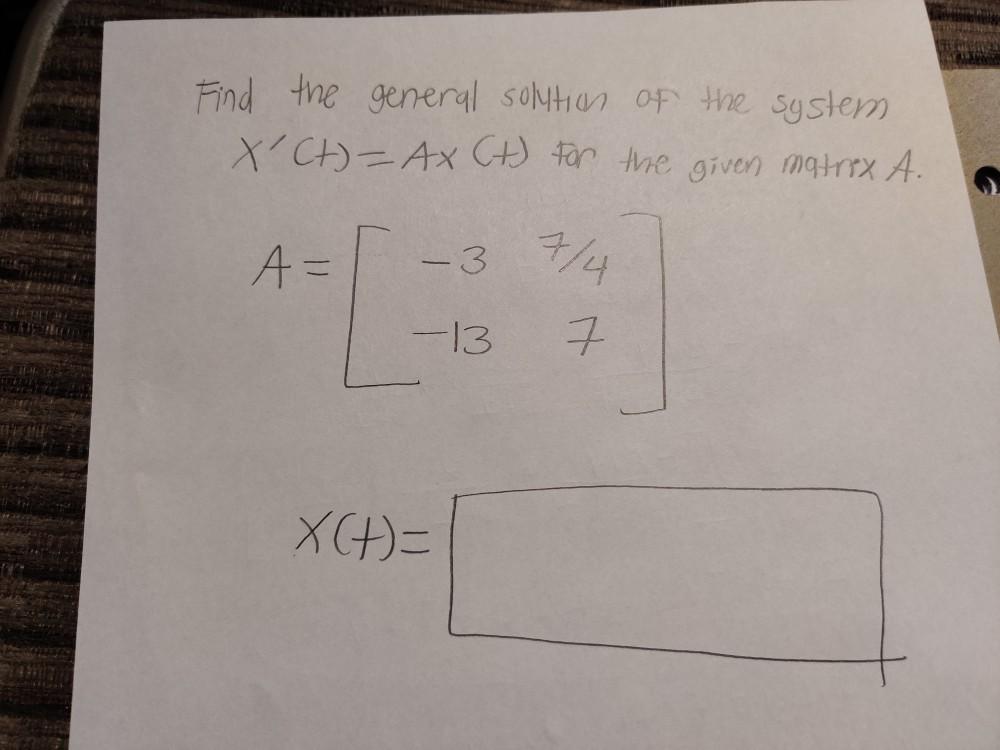 Find the general solution of the system
X'(t)=Ax(t) for the given matrix A.
A= [ -3 7/4
-13 7 ]
X(t)=